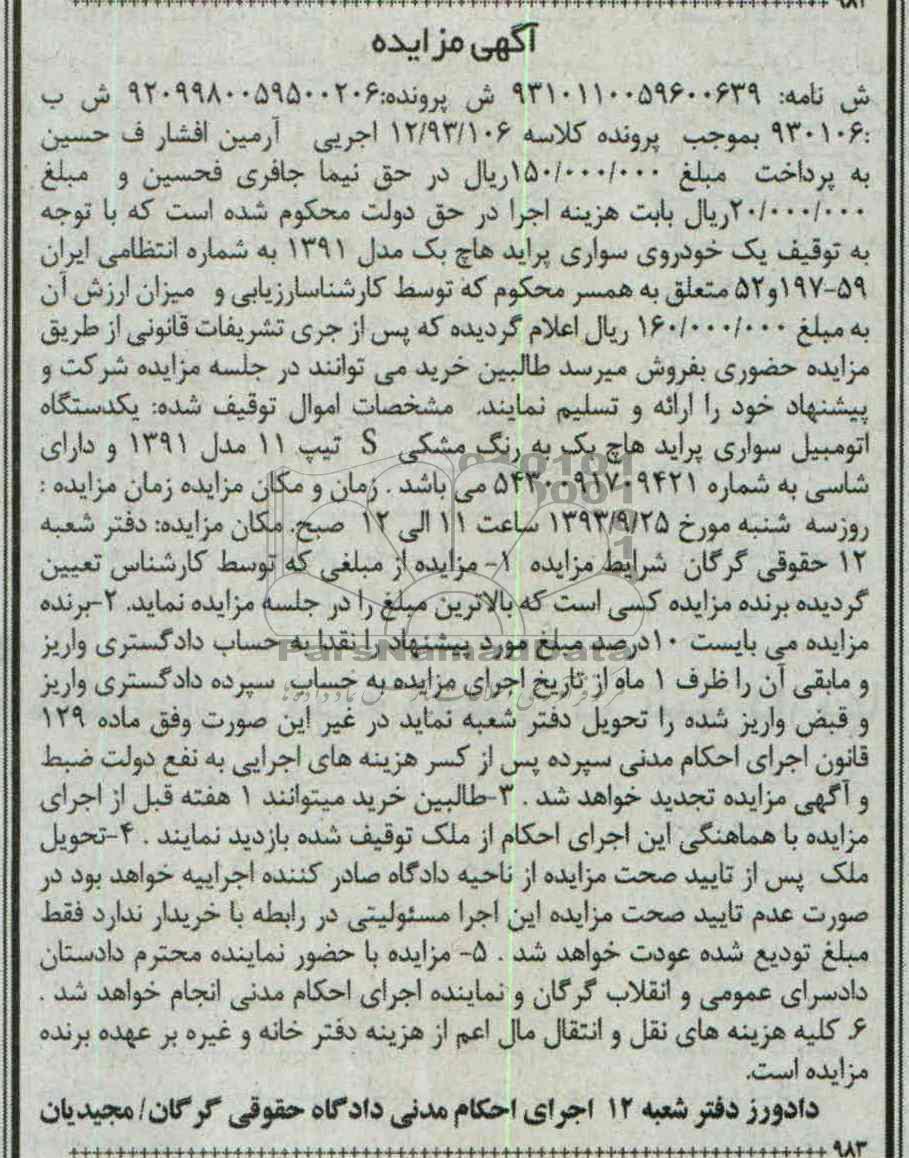 ۹۸۲
آگهی مزایده
ش نامه: ۹۳۱۰۱۱۰۰۵۹۶۰۰۶۳۹ ش پرونده:۹۲۰۹۹۸۰۰۵۹۵۰۰۲۰۶ ش ب
:۹۳۰۱۰۶ بموجب پرونده کلاسه ۱۲/۹۳/۱۰۶ اجریی آرمین افشار ف حسین
به پرداخت مبلغ ۱۵۰/۰۰۰/۰۰۰ریال در حق نیما جافری فحسین و مبلغ
۲۰/۰۰۰/۰۰۰ریال بابت هزینه اجرا در حق دولت محکوم شده است که با توجه
به توقیف یک خودروی سواری پراید هاچ بک مدل ۱۳۹۱ به شماره انتظامی ایران
۵۹-۱۹۷و۵۲ متعلق به همسر محکوم که توسط کارشناسارزیابی و میزان ارزش آن
به مبلغ ۱۶۰/۰۰۰/۰۰۰ ریال اعلام گردیده که پس از جری تشریفات قانونی از طریق
مزایده حضوری بفروش میرسد طالبین خرید می توانند در جلسه مزایده شرکت و
پیشنهاد خود را ارائه و تسلیم نمایند. مشخصات اموال توقیف شده: یکدستگاه
اتومبیل سواری پراید هاچ بک به رنگ مشکی S تیپ ۱۱ مدل ۱۳۹۱ و دارای
شاسی به شماره ۵۴۳۰۰۹۱۷۰۹۴۲۱ می باشد . زمان و مکان مزایده زمان مزایده :
روزسه شنبه مورخ ۱۳۹۳/۹/۲۵ ساعت ۱۱ الی ۱۲ صبح. مکان مزایده: دفتر شعبه
۱۲ حقوقی گرگان شرایط مزایده ۱- مزایده از مبلغی که توسط کارشناس تعیین
گردیده برنده مزایده کسی است که بالاترین مبلغ را در جلسه مزایده نماید. ۲-برنده
مزایده می بایست ۱۰درصد مبلغ مورد پیشنهاد را نقدا به حساب دادگستری واریز
ParsNamadData
و مابقی آن را ظرف ۱ ماه از تاریخ اجرای مزایده به حساب سپرده دادگستری واریز
و قبض واریز شده را تحویل دفتر شعبه نماید در غیر این صورت وفق ماده ۱۲۹
قانون اجرای احکام مدنی سپرده پس از کسر هزینه های اجرایی به نفع دولت ضبط
و آگهی مزایده تجدید خواهد شد . ۳-طالبین خرید میتوانند ۱ هفته قبل از اجرای
مزایده با هماهنگی این اجرای احکام از ملک توقیف شده بازدید نمایند . ۴-تحویل
ملک پس از تایید صحت مزایده از ناحیه دادگاه صادر کننده اجراییه خواهد بود در
صورت عدم تایید صحت مزایده این اجرا مسئولیتی در رابطه با خریدار ندارد فقط
مبلغ تودیع شده عودت خواهد شد . ۵- مزایده با حضور نماینده محترم دادستان
دادسرای عمومی و انقلاب گرگان و نماینده اجرای احکام مدنی انجام خواهد شد .
۶ـ کلیه هزینه های نقل و انتقال مال اعم از هزینه دفتر خانه و غیره بر عهده برنده
مزایده است.
دادورز دفتر شعبه ۱۲ اجرای احکام مدنی دادگاه حقوقی گرگان/ مجیدیان
۹۸۳